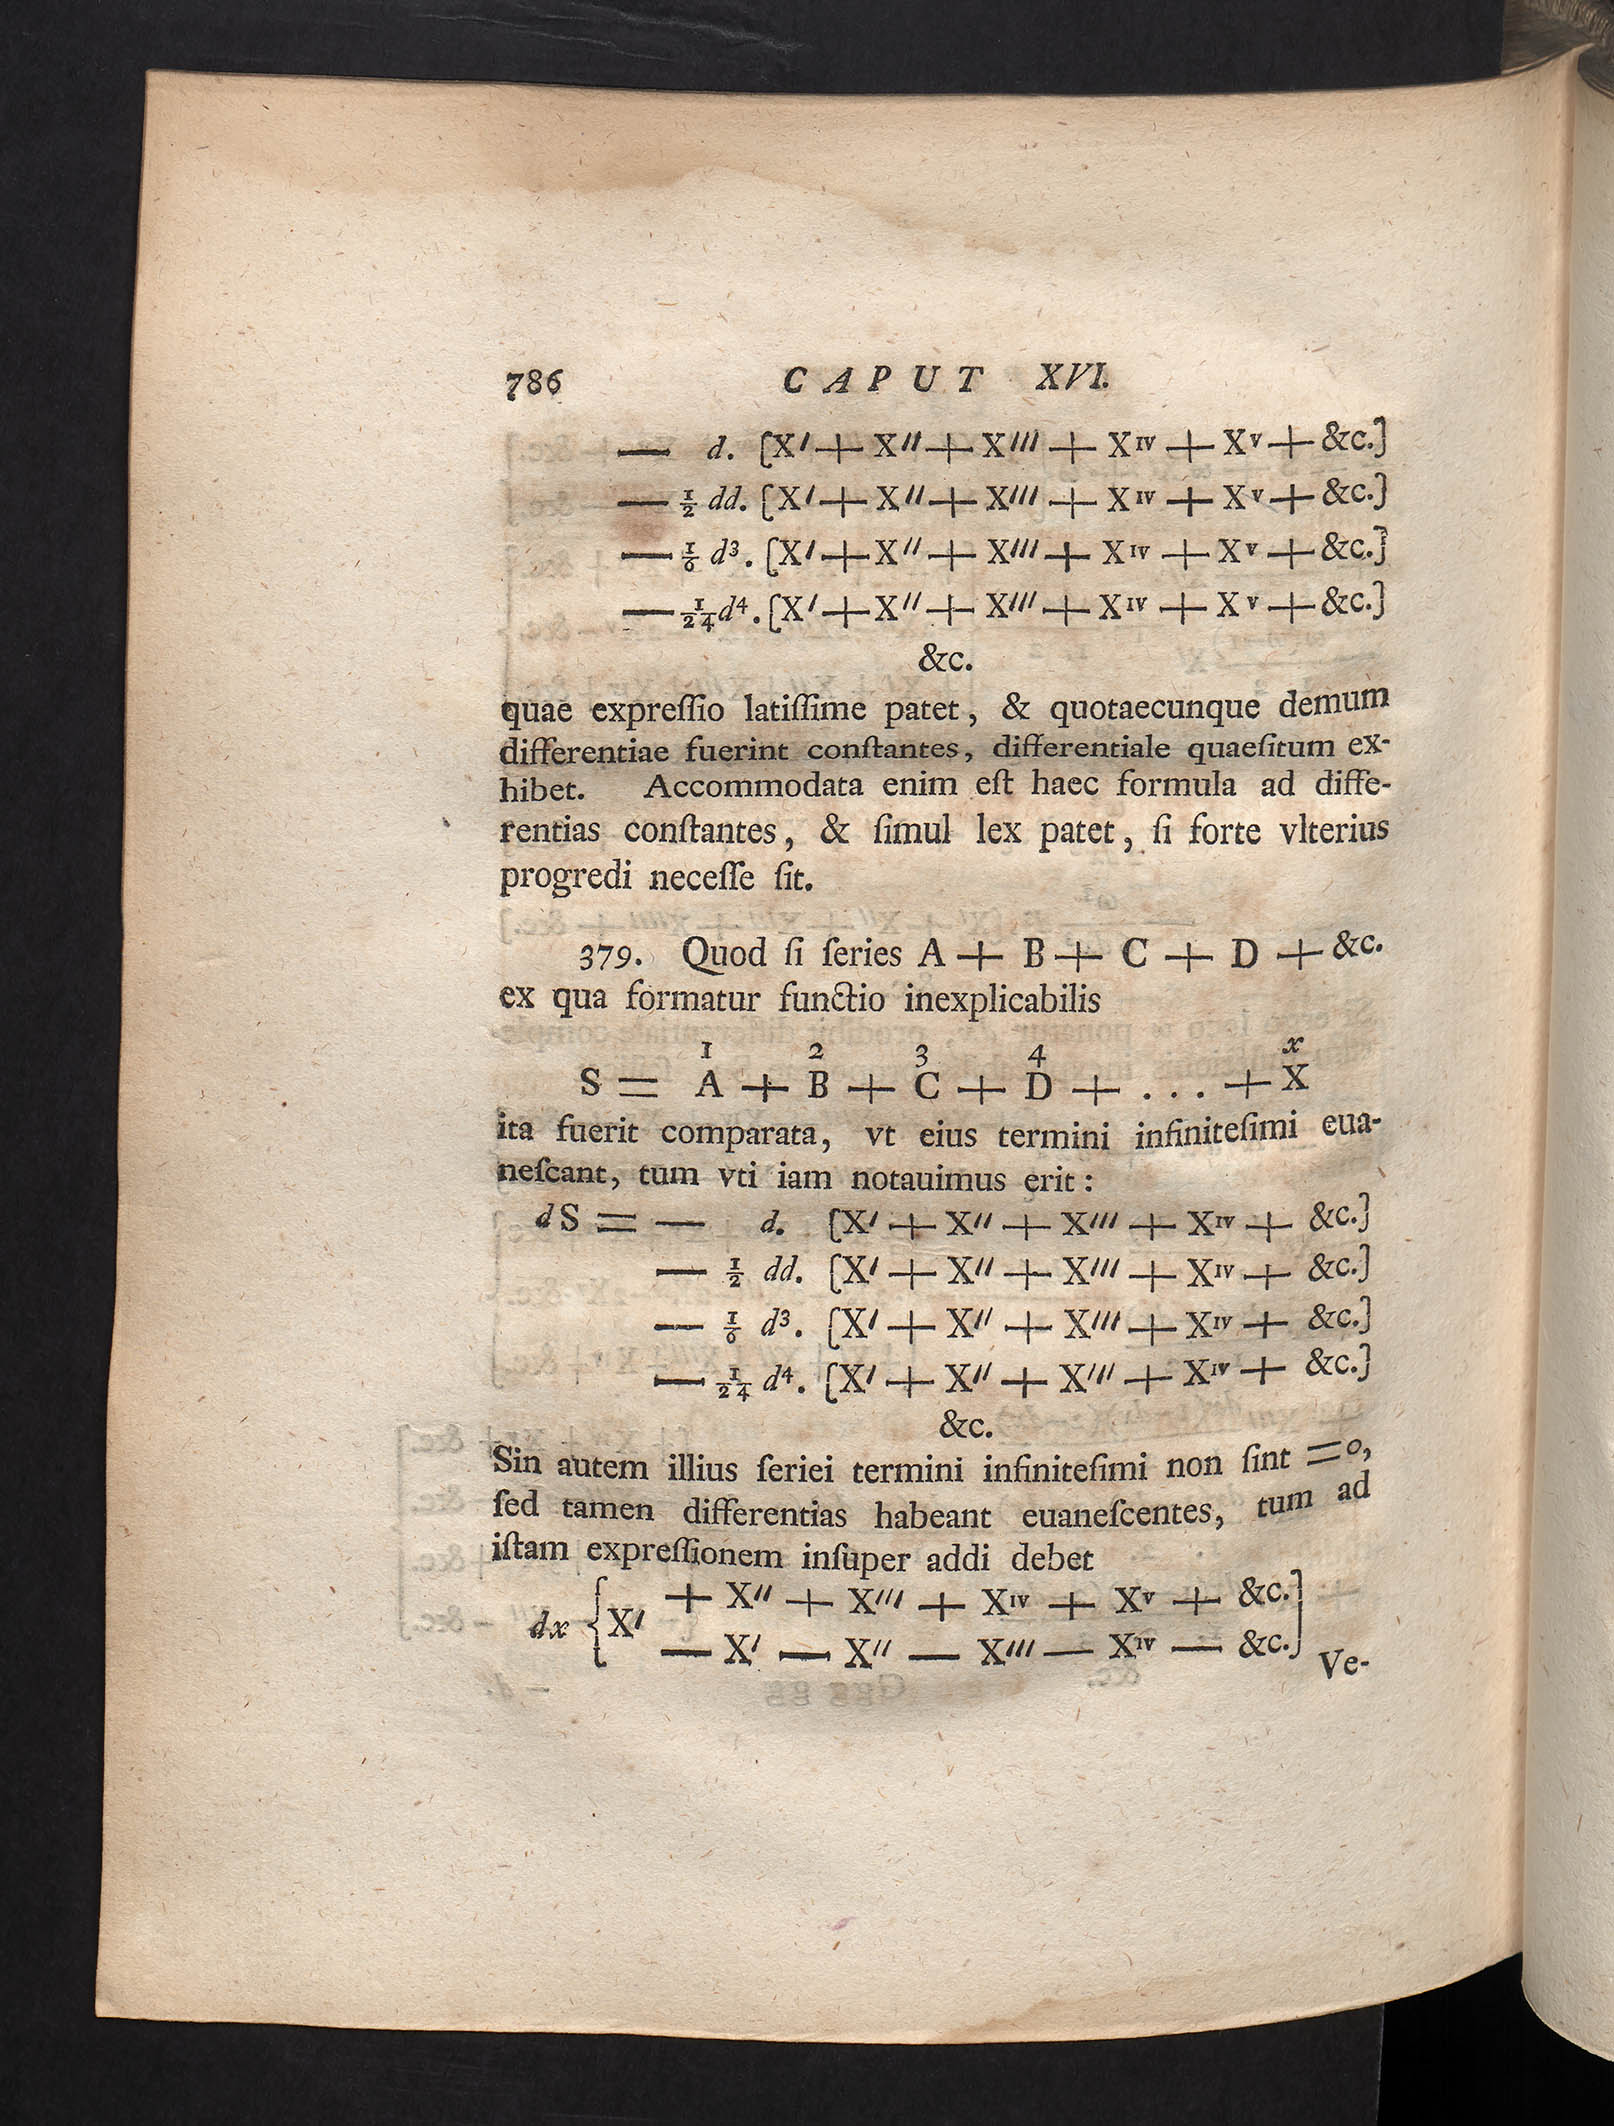 786 CAPUT XVI.
— d. [X′ + X″ + X‴ + Xᴵⱽ + Xⱽ + &c.]
— ½ dd. [X′ + X″ + X‴ + Xᴵⱽ + Xⱽ + &c.]
— ⅙ d³. [X′ + X″ + X‴ + Xᴵⱽ + Xⱽ + &c.]
— 1/24 d⁴. [X′ + X″ + X‴ + Xᴵⱽ + Xⱽ + &c.]
&c.
quae expreſſio latiſſime patet, & quotaecunque demum
differentiae fuerint conſtantes, differentiale quaeſitum ex-
hibet. Accommodata enim eſt haec formula ad diffe-
rentias conſtantes, & ſimul lex patet, ſi forte vlterius
progredi neceſſe ſit.
379. Quod ſi ſeries A + B + C + D + &c.
ex qua formatur functio inexplicabilis
1 2 3 4 x
S = A + B + C + D + . . . + X
ita fuerit comparata, vt eius termini infiniteſimi eua-
neſcant, tum vti iam notauimus erit:
dS = — d. [X′ + X″ + X‴ + Xᴵⱽ + &c.]
— ½ dd. [X′ + X″ + X‴ + Xᴵⱽ + &c.]
— ⅙ d³. [X′ + X″ + X‴ + Xᴵⱽ + &c.]
— 1/24 d⁴. [X′ + X″ + X‴ + Xᴵⱽ + &c.]
&c.
Sin autem illius ſeriei termini infiniteſimi non ſint =0,
ſed tamen differentias habeant euaneſcentes, tum ad
iſtam expreſſionem inſuper addi debet
+ X″ + X‴ + Xᴵⱽ + Xⱽ + &c.
dx {X′
— X′ — X″ — X‴ — Xᴵⱽ — &c.}
Ve-